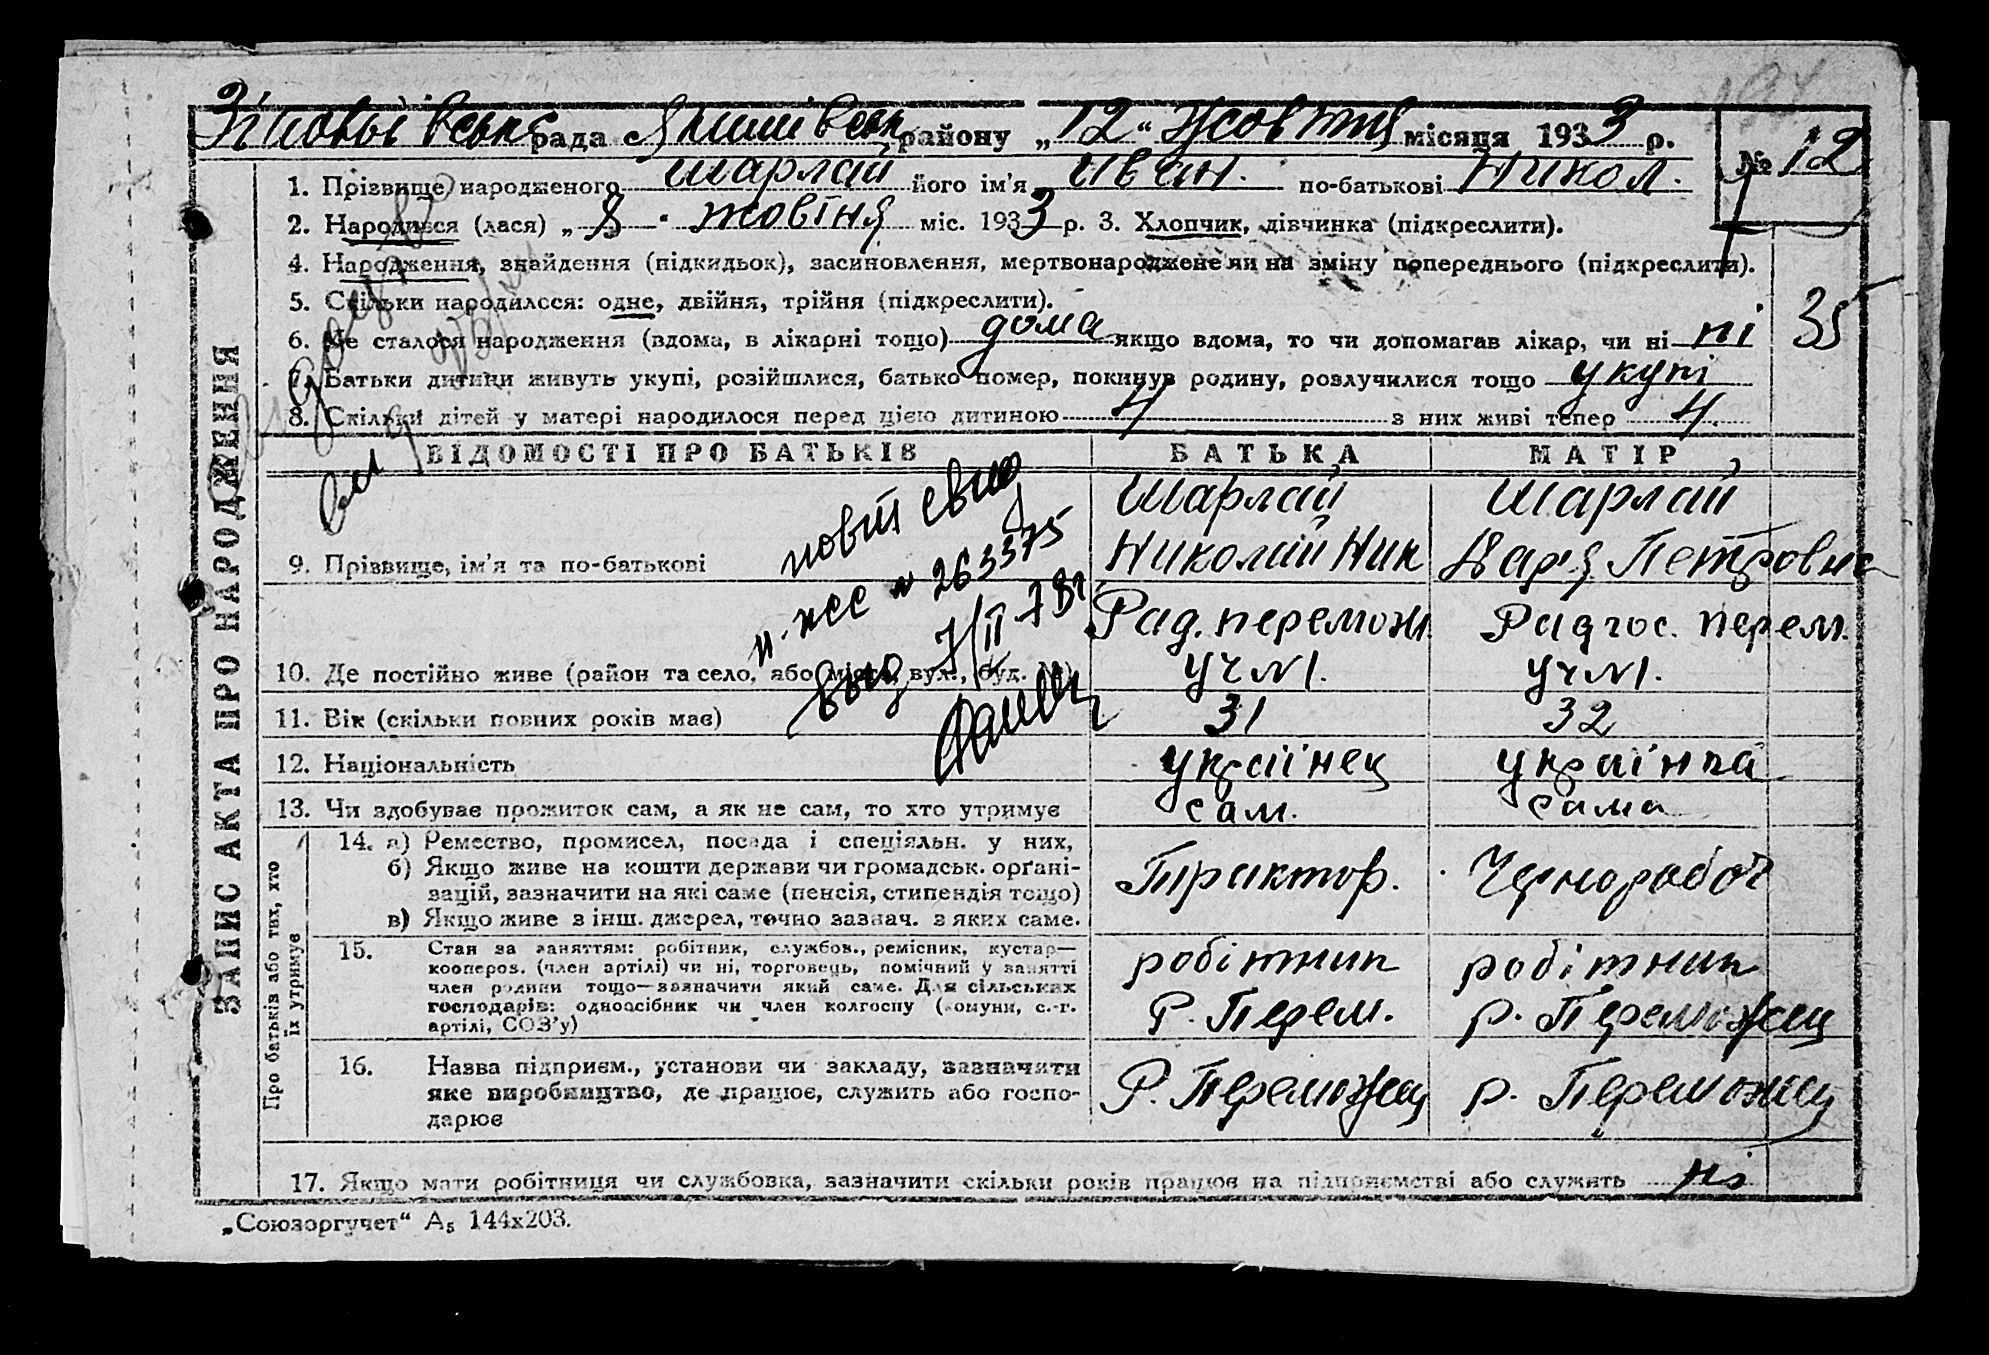 рада
району „12“ жовтня місяця 1933 р.
№ 12
1. Прізвище народженого Шарлай його ім'я Иван. по-батькові Никол.
2. Народився (лася) „8 жовтня міс. 1933 р. 3. Хлопчик, дівчинка (підкреслити).
4. Народження, знайдення (підкидьок), засиновлення, мертвонароджене чи на зміну попереднього (підкреслити).
5. Скільки народилося: одне, двійня, трійня (підкреслити).
6. Де сталося народження (вдома, в лікарні тощо) дома якщо вдома, то чи допомагав лікар, чи ні ні
35
7. Батьки дитини живуть укупі, розійшлися, батько помер, покинув родину, розлучилися тощо укупі
8. Скільки дітей у матері народилося перед цією дитиною 4 з них живі тепер 4.
ЗАПИС АКТА ПРО НАРОДЖЕННЯ
ВІДОМОСТІ ПРО БАТЬКІВ БАТЬКА МАТІР
9. Прізвище, ім'я та по-батькові
Шарлай
Николай Ник
Шарлай
Дар'я Петровна
№ 263375
10. Де постійно живе (район та село, або місто, вул., буд. №)
Рад. перемож.
уч №1.
Радгос. перем.
уч №1.
11. Вік (скільки повних років має) 31 32
12. Національність украінец украінка
13. Чи здобуває прожиток сам, а як не сам, то хто утримує сам. сама
Про батьків або тих, хто
їх утримує
14. а) Ремество, промисел, посада і спеціяльн. у них,
б) Якщо живе на кошти держави чи громадськ. орґані-
зацій, зазначити на які саме (пенсія, стипендія тощо)
в) Якщо живе з інш. джерел, точно зазнач. з яких саме.
Трактор. Чернорабоч
15. Стан за заняттям: робітник, службов., ремісник, кустар—
коопероз. (член артілі) чи ні, торговець, помічний у занятті
член родини тощо—зазначити який саме. Для сільських
господарів: одноосібник чи член колгоспу (комуни, с.-г.
артілі, СОЗ'у)
робітник
Р. Перем.
робітник
р. Переможец
16. Назва підприєм., установи чи закладу, зазначити
яке виробництво, де працює, служить або госпо-
дарює
Р. Переможец р. Переможец
17. Якщо мати робітниця чи службовка, зазначити скільки років працює на підприємстві або служить ні
„Союзоргучет“ А₅ 144х203.